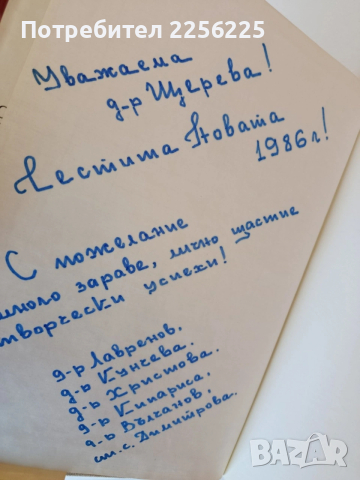 Потребител 2256225
Уважаема
д-р Щерева!
Честита Новата
1986 г!
С пожелание
много здраве, лично щастие
творчески успехи!
д-р Лавренов.
д-р Кунчева.
д-р Христова.
д-р Кипариса.
д-р Вълчанов.
ст. с. Димитрова.
BAZAR